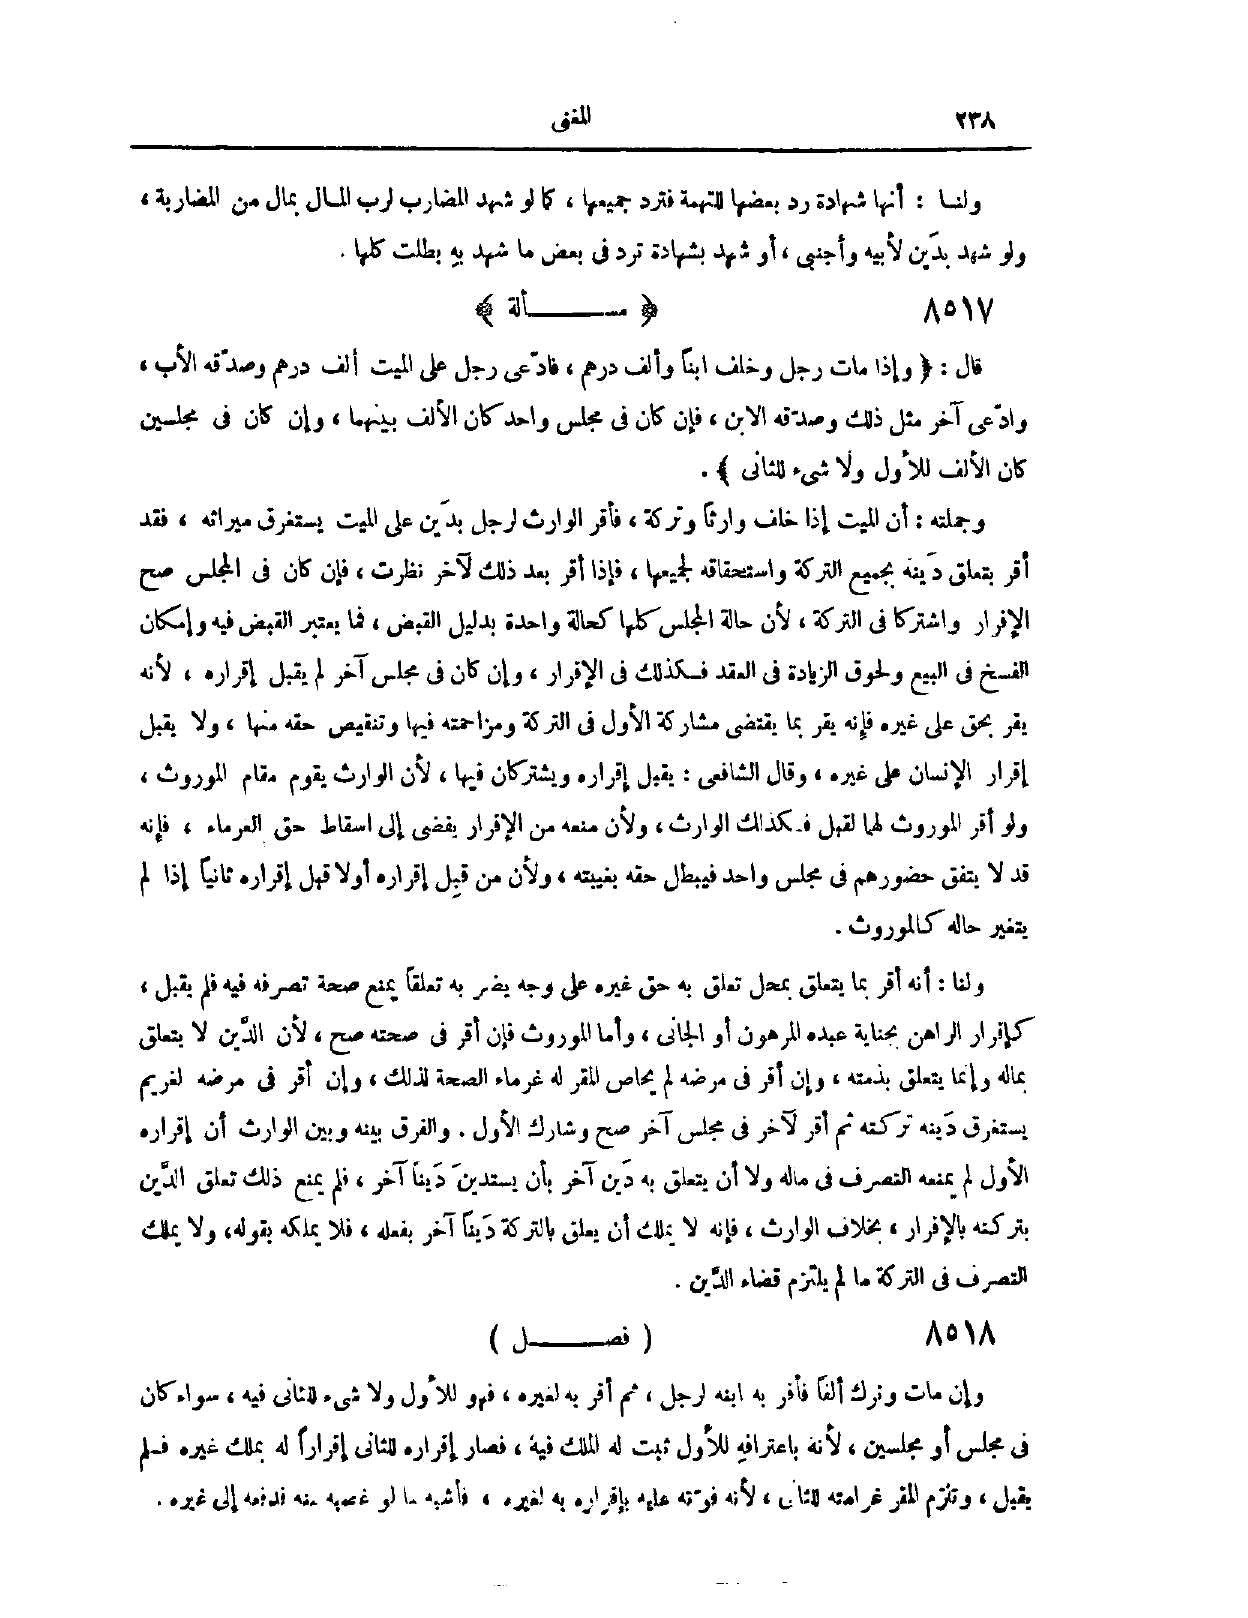 ٢٣٨ المغنى
ولنا : أنها شهادة رد بعضها للتهمة فترد جميعها ، كما لو شهد المضارب لرب المال بمال من المضاربة ،
ولو شهد بدَين لأبيه وأجنبى ، أو شهد بشهادة ترد فى بعض ما شهد به بطلت كلها .
٨٥١٧ ﴿ مســـألة ﴾
قال : ﴿ وإذا مات رجل وخلف ابناً وألف درهم ، فادّعى رجل على الميت ألف درهم وصدّقه الأب ،
وادّعى آخر مثل ذلك وصدّقه الابن ، فإن كان فى مجلس واحد كان الألف بينهما ، وإن كان فى مجلسين
كان الألف للأول ولا شىء للثانى ﴾ .
وجملته : أن الميت إذا خلف وارثاً وتركة ، فأقر الوارث لرجل بدَين على الميت يستغرق ميراثه ، فقد
أقر بتعلق دَينه بجميع التركة واستحقاقه لجميعها ، فإذا أقر بعد ذلك لآخر نظرت ، فإن كان فى المجلس صح
الإقرار واشتركا فى التركة ، لأن حالة المجلس كلها كحالة واحدة بدليل القبض ، فما يعتبر القبض فيه وإمكان
الفسخ فى البيع ولحوق الزيادة فى العقد فكذلك فى الإقرار ، وإن كان فى مجلس آخر لم يقبل إقراره ، لأنه
يقر بحق على غيره فإنه يقر بما يقتضى مشاركة الأول فى التركة ومزاحمته فيها وتنقيص حقه منها ، ولا يقبل
إقرار الإنسان على غيره ، وقال الشافعى : يقبل إقراره ويشتركان فيها ، لأن الوارث يقوم مقام الموروث ،
ولو أقر الموروث لهما لقبل فكذلك الوارث ، ولأن منعه من الإقرار يفضى إلى اسقاط حق الغرماء ، فإنه
قد لا يتفق حضورهم فى مجلس واحد فيبطل حقه بغيبته ، ولأن من قبِل إقراره أولا قبل إقراره ثانياً إذا لم
يتغير حاله كالموروث .
ولنا : أنه أقر بما يتعلق بمحل تعلق به حق غيره على وجه يضر به تعلقاً يمنع صحة تصرفه فيه فلم يقبل ،
كإقرار الراهن بجناية عبده المرهون أو الجانى ، وأما الموروث فإن أقر فى صحته صح ، لأن الدَّين لا يتعلق
بماله وإنما يتعلق بذمته ، وإن أقر فى مرضه لم يحاص المقر له غرماء الصحة لذلك ، وإن أقر فى مرضه لغريم
يستغرق دَينه تركته ثم أقر لآخر فى مجلس آخر صح وشارك الأول . والفرق بينه وبين الوارث أن إقراره
الأول لم يمنعه التصرف فى ماله ولا أن يتعلق به دَين آخر بأن يستدينَ دَيناً آخر ، فلم يمنع ذلك تعلق الدَّين
بتركته بالإقرار ، بخلاف الوارث ، فإنه لا يملك أن يعلق بالتركة دَيناً آخر بفعله ، فلا يملكه بقوله، ولا يملك
التصرف فى التركة ما لم يلتزم قضاء الدَّين .
٨٥١٨ ( فصـــل )
وإن مات وترك ألفاً فأقر به ابنه لرجل ، ثم أقر به لغيره ، فهو للأول ولا شىء للثانى فيه ، سواء كان
فى مجلس أو مجلسين ، لأنه باعترافه للأول ثبت له الملك فيه ، فصار إقراره للثانى إقراراً له بملك غيره فلم
يقبل ، وتلزم المقر غرامته للثانى ، لأنه فوّته عليه بإقراره به لغيره ، فأشبه ما لو غصبه منه فدفعه إلى غيره .